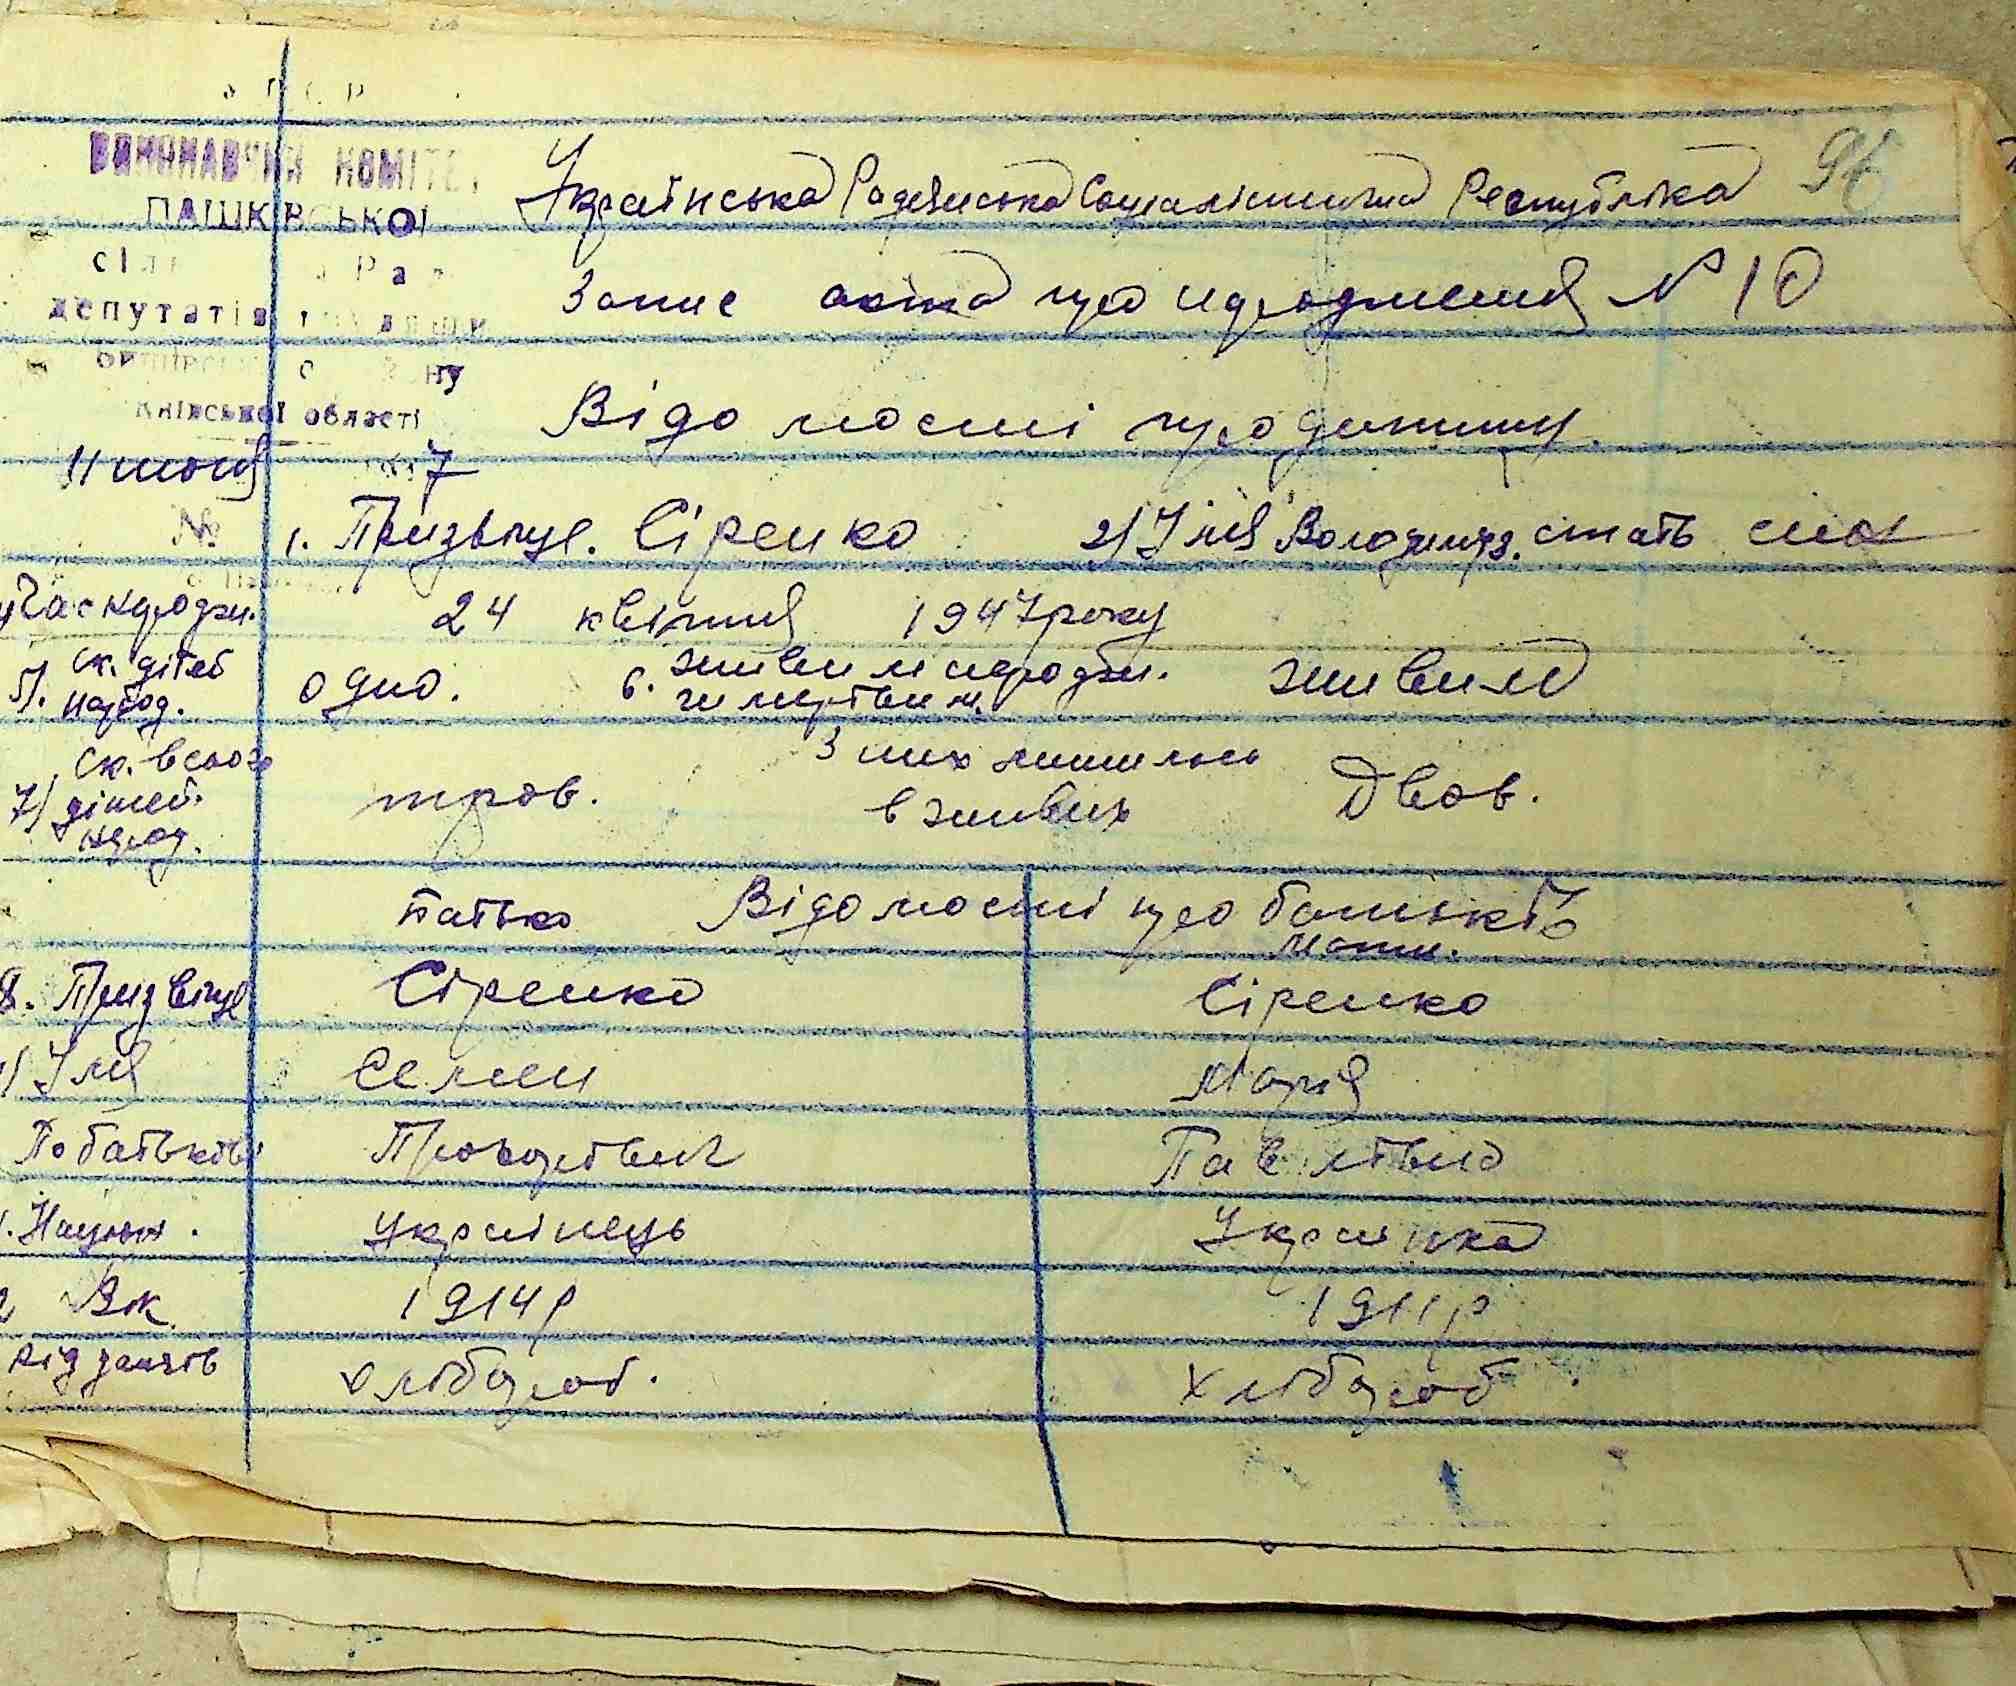 ВИКОНАВЧИЙ КОМІТЕТ
ПАШКІВСЬКОЇ
депутатів
Київської області
Українська Радянська Соціалістична Республіка 96
Запис акта про народження № 10
Відомості про дитину.
11 июня 7
№
1. Призвище. Сіренко 2) Імя Володимир. стать син
Час народжн. 24 квітня 1947 року
5). ск. дітей народ. одно. 6. живим народжн. чи мертвим. живим
7) ск. всього дітей народ. троє. З них лишилось в живих двоє.
Відомості про батьків
батько мати.
8. Призвіще Сіренко Сіренко
Імя Семен Марія
По батькові Павлівна
Націон. Українець Українка
Вік 1914р 1911р
Рід занять хлібороб. хлібороб.